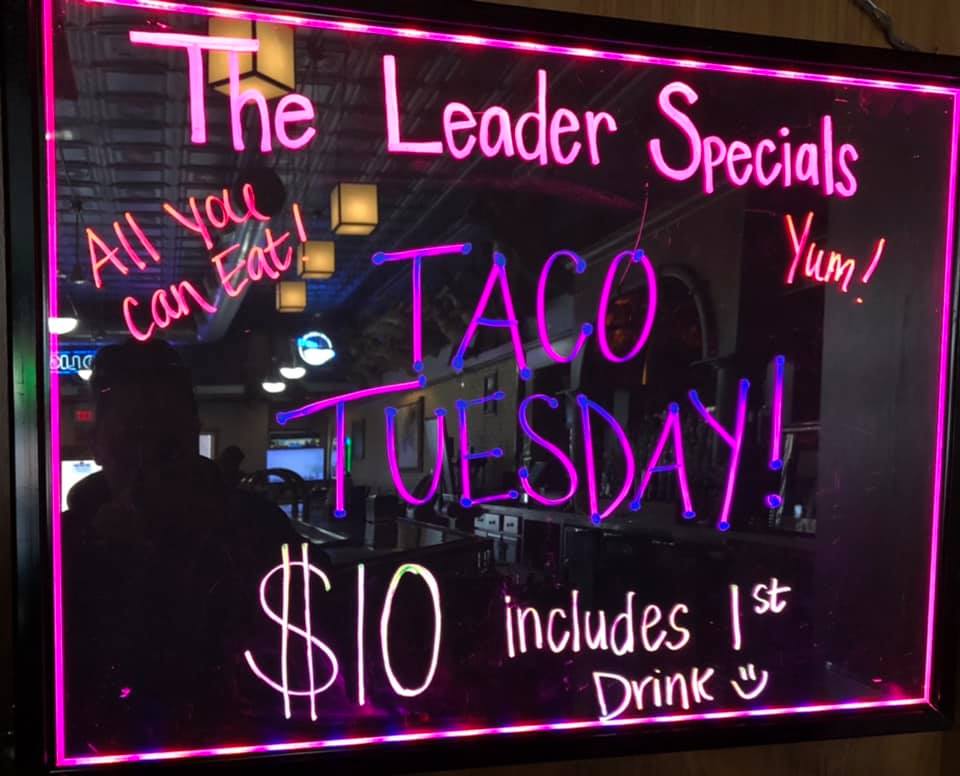 The Leader Specials
All You
can Eat!
Yum!
TACO
TUESDAY!
$10 includes 1st
Drink